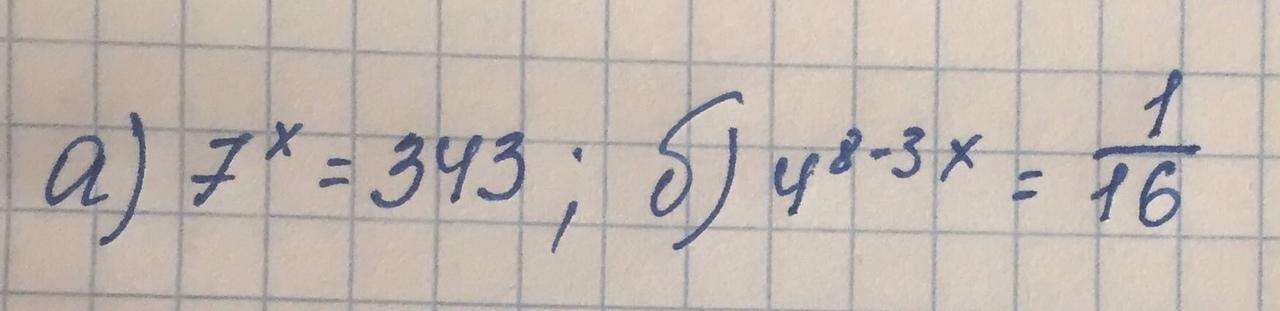 а) 7^x = 343; б) 4^{8-3x} = \frac{1}{16}